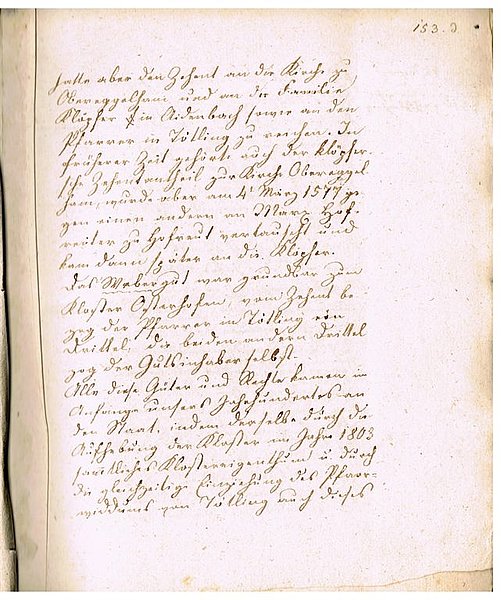 153. d.
hatte aber den Zehent an die Kirche zu
Obereggelham und an die Familie
Klöpfer in Aidenbach sowie an den
Pfarrer in Tötling zu reichen. In
früherer Zeit gehörte auch der Klöpfer-
sche Zehentantheil zur Kirche Obereggel-
ham, wurde aber am 4t März 1577 ge-
gen einen andern an Marx Hof-
reuter zu Hofreut vertauscht und
kam dann später an die Klöpfer.
Das Webergut war grundbar zum
Kloster Osterhofen, vom Zehent be-
zog der Pfarrer in Tötling ein
Drittel, die beiden andern Drittel
zog der Gutsinhaber selbst.
Alle diese Güter und Rechte kamen im
Anfange unsers Jahrhundertes an
den Staat, indem derselbe durch die
Aufhebung der Klöster im Jahre 1803
sämtliches Klostereigenthum u. durch
die gleichzeitige Einziehung des Pfarr-
widdums von Tötling auch dieses